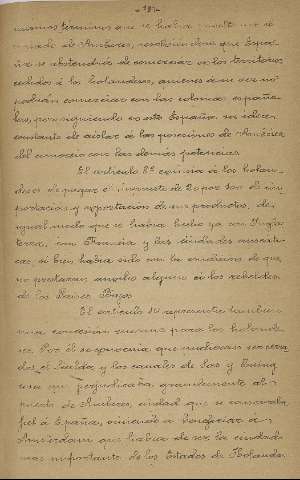 -181-
mismos términos que se había
de Amberes, que Espa-
ña se abstendría de comerciar en los territorios
cedidos a los holandeses, 
podrían comerciar con las colonias españo-
las, pero siguiendo en esto España su idea
constante de aislar a las posesiones de América
del comercio con las demás potencias.
El artículo 8º a los holan-
deses de pagar el de 2 por 100 de im-
portación y exportación de sus productos, de
igual modo que se había hecho ya con Ingla-
terra, con Francia y las ciudades anseáti-
cas si bien había sido con la condición de que
no prestaran auxilio alguno a los rebeldes
de los Países Bajos
El artículo 14 representa tambien
una concesión enorme para los holande-
ses. Por él se convenía que cerra-
dos el Escalda y los canales de Sas y Zwing
perjudicaba grandemente al
puerto de Amberes, ciudad que se conservaba
fiel a España, a beneficiar a
Amsterdam que había de ser la ciudad
más importante de los Estados de Holanda